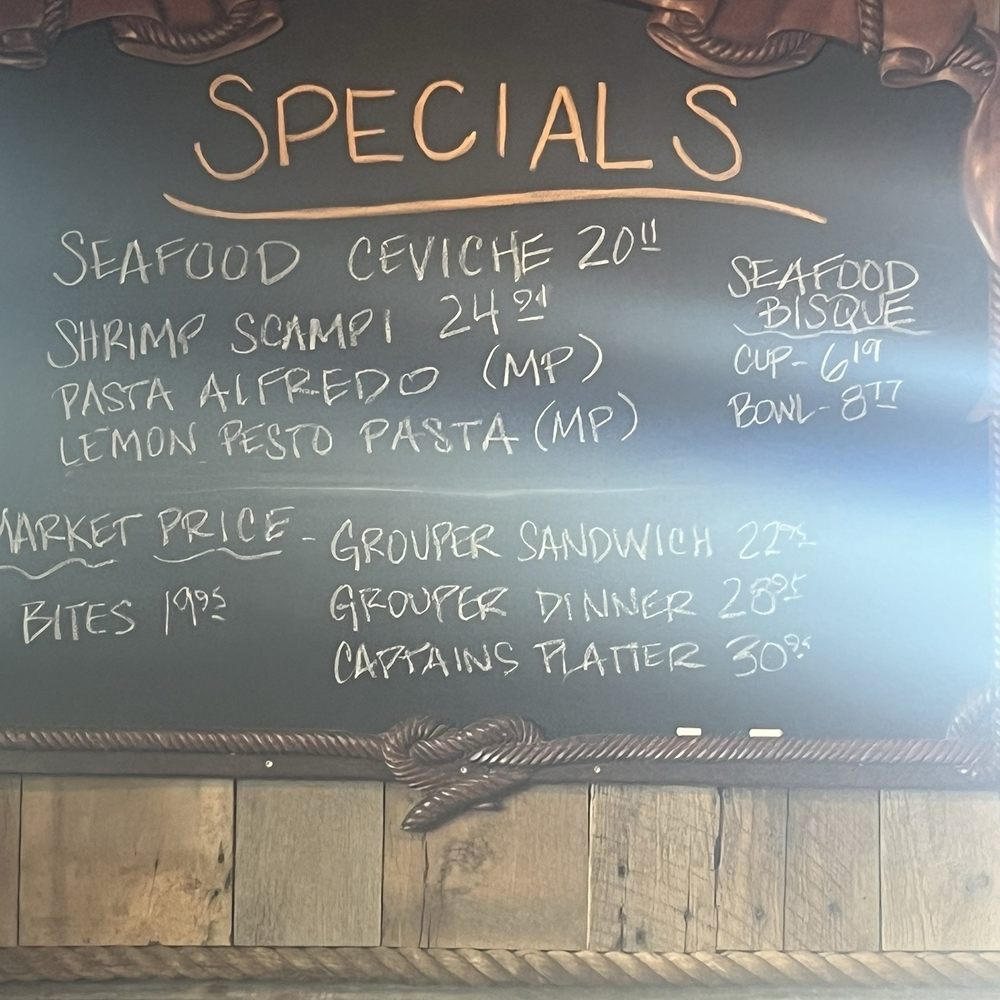 SPECIALS
SEAFOOD CEVICHE 20 11
SHRIMP SCAMPI 24 21
PASTA ALFREDO (MP)
LEMON PESTO PASTA (MP)
SEAFOOD
BISQUE
CUP - 6 19
BOWL - 8 77
MARKET PRICE - GROUPER SANDWICH 22 95
BITES 19 95
GROUPER DINNER 28 95
CAPTAINS PLATTER 30 95